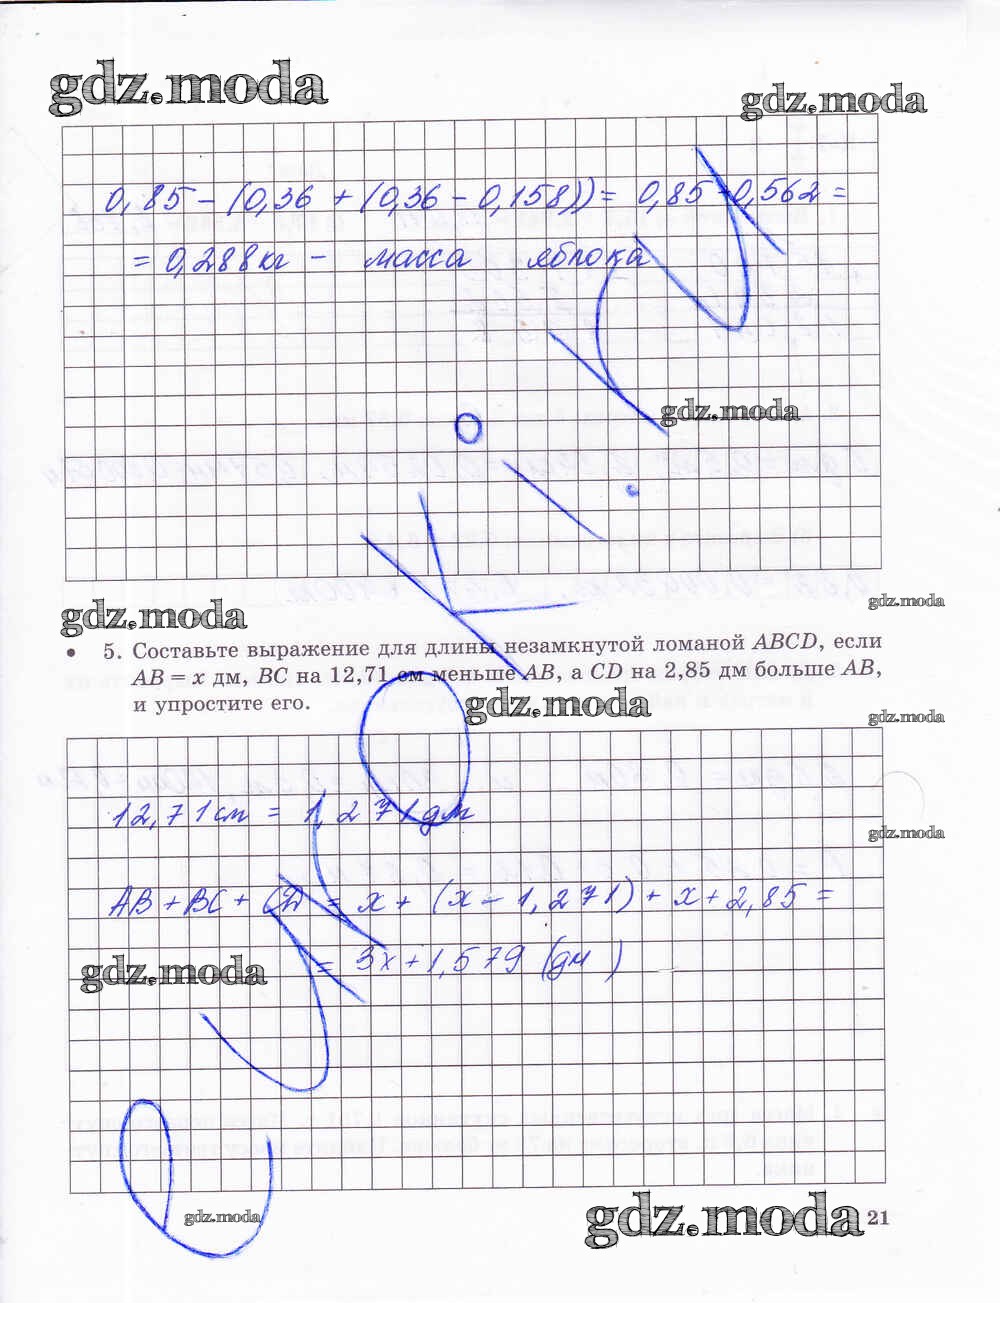 gdz.moda
gdz.moda
0,85 - (0,36 + (0,36 - 0,158)) = 0,85 - 0,562 =
= 0,288 кг - масса яблока
gdz.moda
gdz.moda
gdz.moda
• 5. Составьте выражение для длины незамкнутой ломаной ABCD, если
AB = x дм, BC на 12,71 см меньше AB, а CD на 2,85 дм больше AB,
и упростите его.
gdz.moda
gdz.moda
12,71 см = 1,271 дм
gdz.moda
AB + BC + CD = x + (x - 1,271) + x + 2,85 =
= 3x + 1,579 (дм)
gdz.moda
gdz.moda
gdz.moda
21